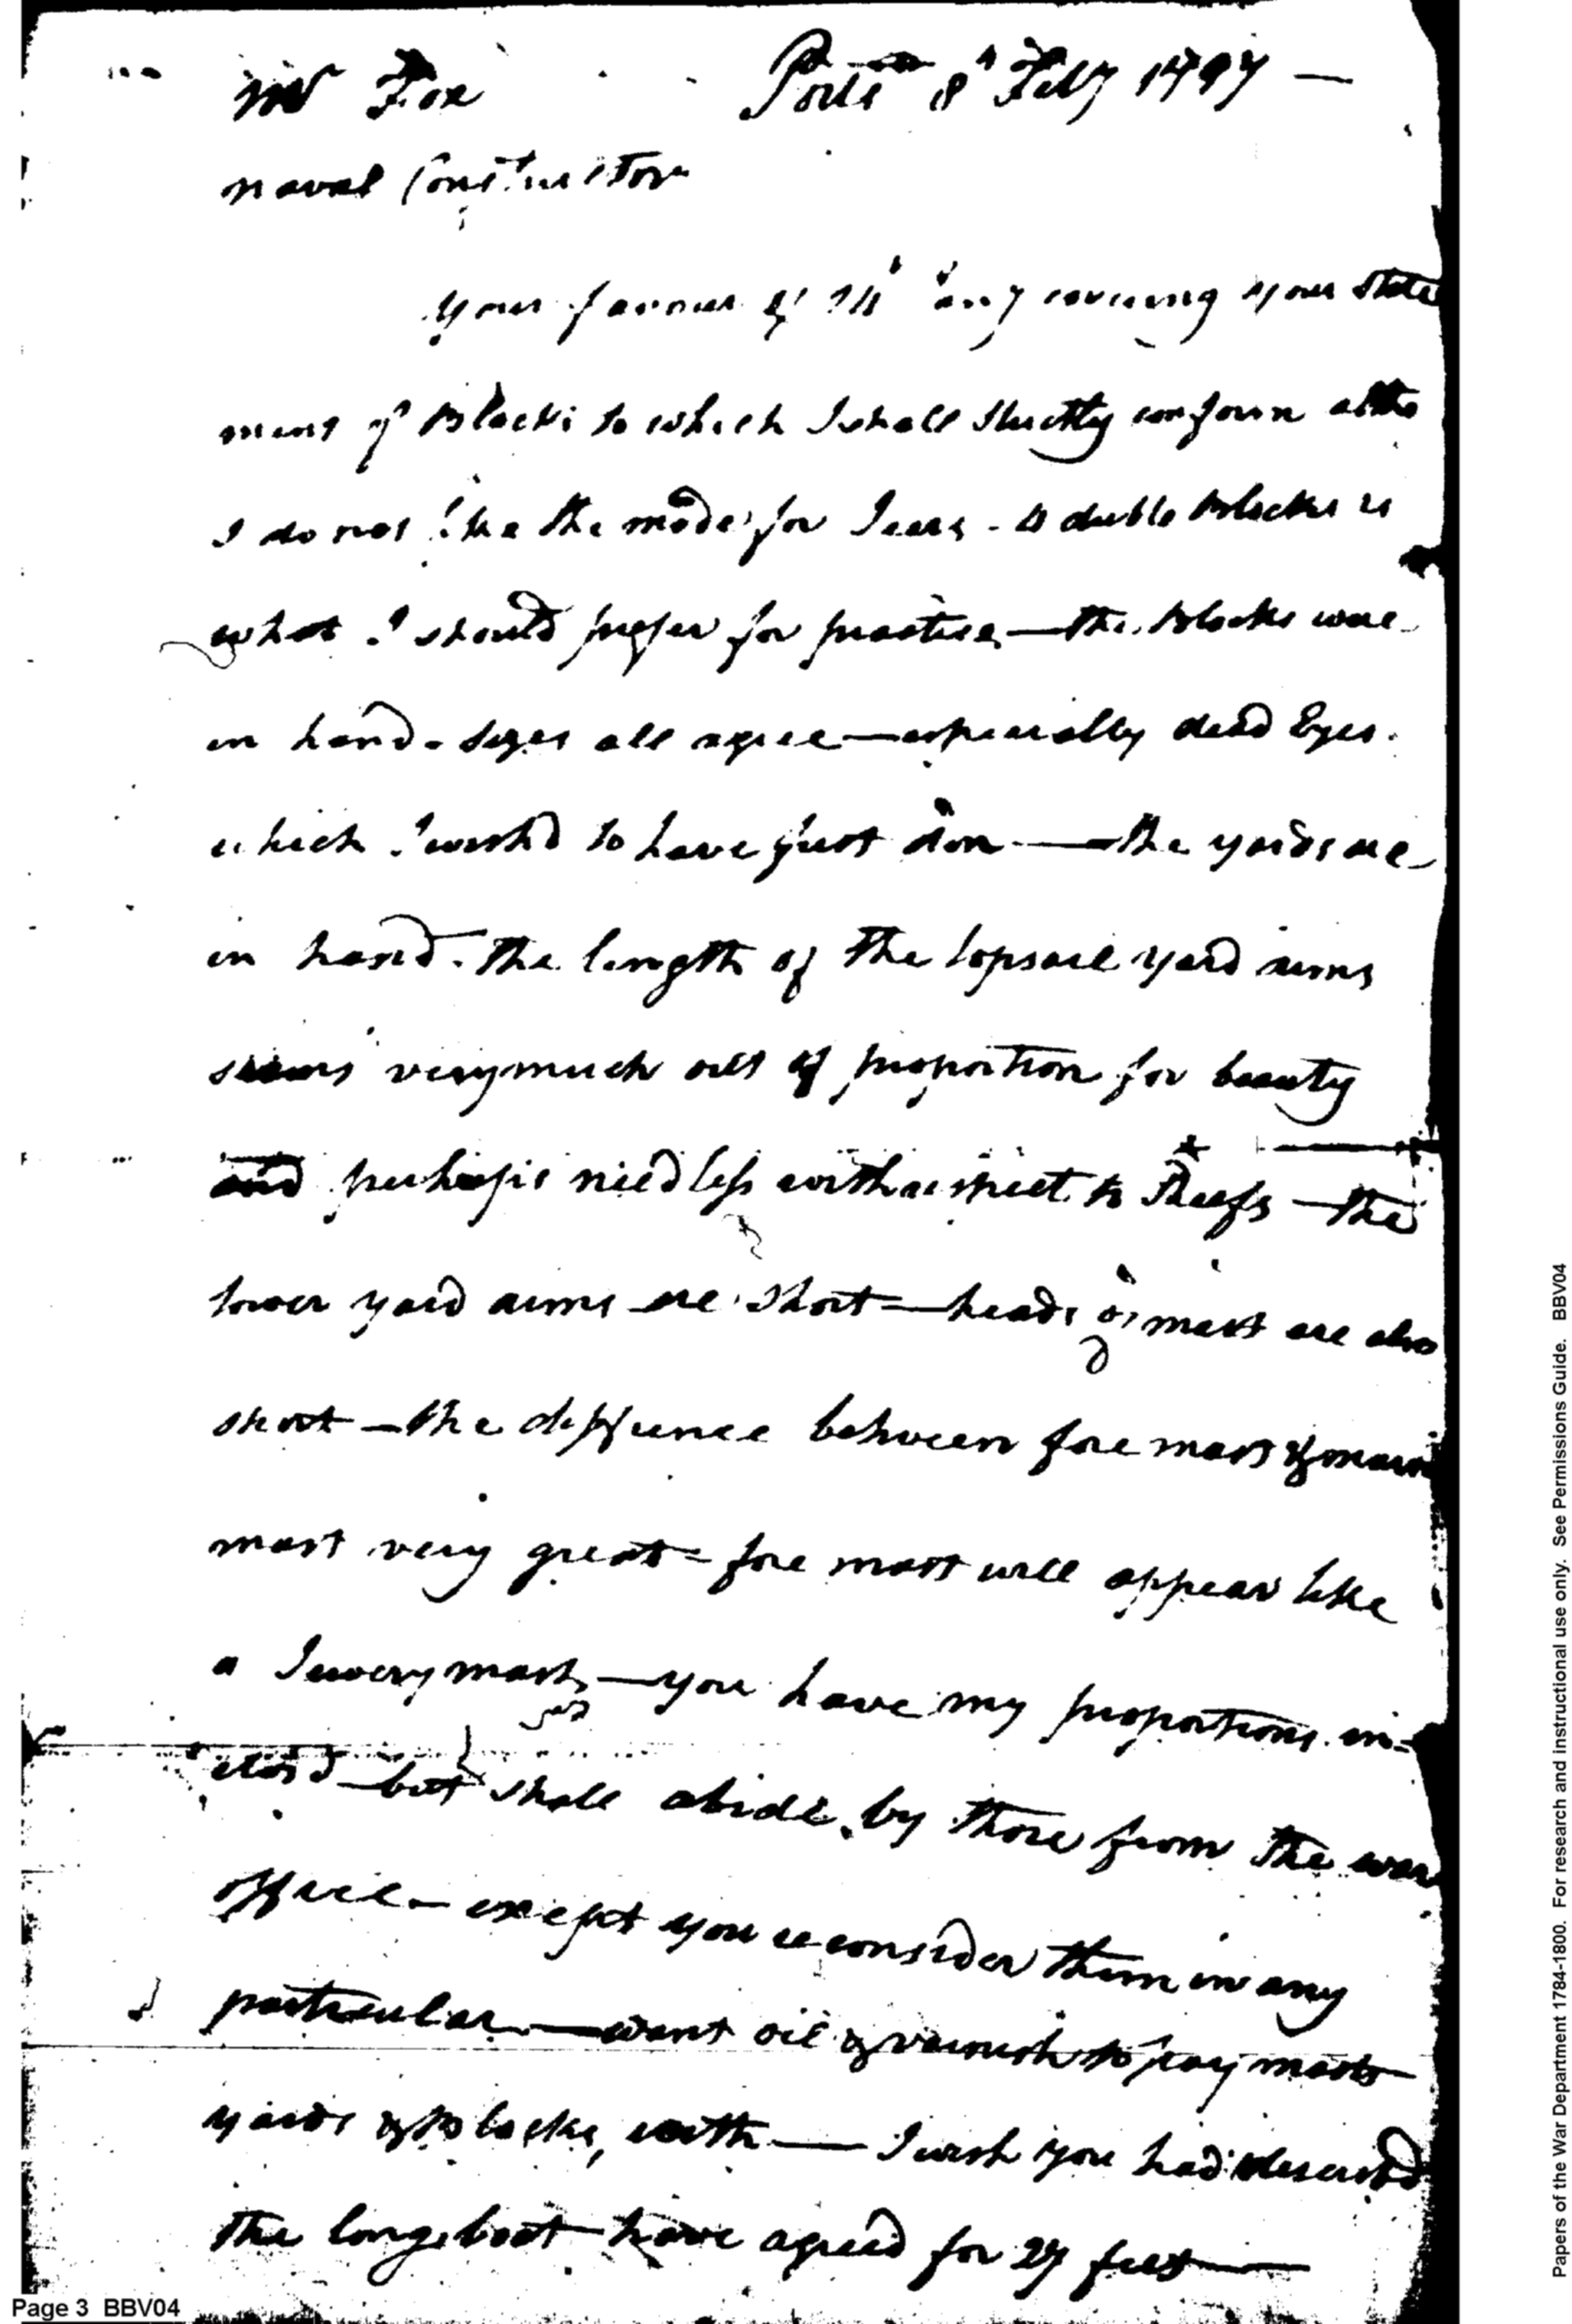 Mr Fox Ports 8th Feby 1797 —
Naval Constructor
your favour of 14th any covering your State
ment of Blocks to which I shall strictly conform altho
I do not like the mode for Jears - 4 duble Blocks is
what I should prefer for practice — the Blocks ware
in hand - sizes all agree — especially dead Eyes.
which I wish'd to have just don — the yards are
in hand. the length of the topsail yard arms
seems very much out of proportion for beauty
and perhaps needless with respect to Reefs — the
lower yard arms are short — heads of mast are also
short — the diffrence between fore mast & main
mast very great - fore mast will appear like
a Juery mast, — you have my proportions in-
clos'd — but shall abide by those from the war
office - except you reconsider them in any
particular — want oil & varnish to pay masts
yards & Blocks, with — I wish you had describd
the long boat have agreed for 27 feet —
Page 3 BBV04
Papers of the War Department 1784-1800. For research and instructional use only. See Permissions Guide. BBV04